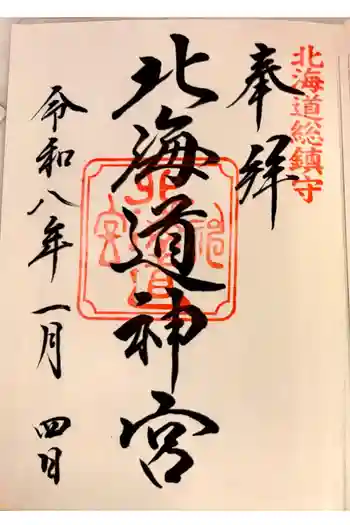 北海道総鎮守
奉拝
北海道神宮
令和八年一月四日